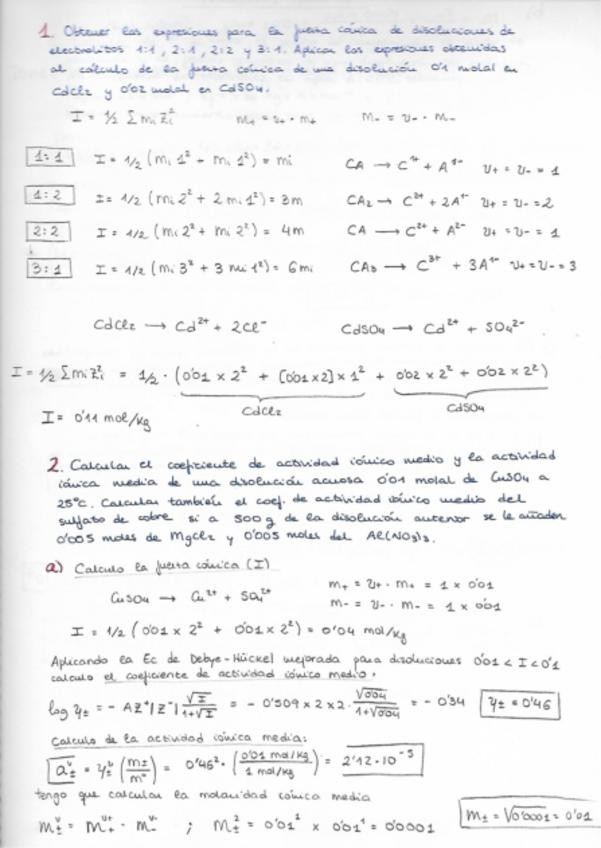 1. Obtener las expresiones para la fuerza iónica de disoluciones de
electrolitos 1:1, 2:1, 2:2 y 3:1. Aplicar las expresiones obtenidas
al cálculo de la fuerza iónica de una disolución 0'1 molal en
CdCl₂ y 0'02 molal en CdSO₄.
I = 1/2 Σ mᵢ zᵢ² m₊ = ν₊ · m₊ m₋ = ν₋ · m₋
1:1 I = 1/2 (mᵢ 1² + mᵢ 1²) = mᵢ CA → C¹⁺ + A¹⁻ ν₊ = ν₋ = 1
1:2 I = 1/2 (mᵢ 2² + 2 mᵢ 1²) = 3m CA₂ → C²⁺ + 2A¹⁻ ν₊ = ν₋ = 2
2:2 I = 1/2 (mᵢ 2² + mᵢ 2²) = 4m CA → C²⁺ + A²⁻ ν₊ = ν₋ = 1
3:1 I = 1/2 (mᵢ 3² + 3 mᵢ 1²) = 6mᵢ CA₃ → C³⁺ + 3A¹⁻ ν₊ = ν₋ = 3
CdCl₂ → Cd²⁺ + 2Cl⁻ CdSO₄ → Cd²⁺ + SO₄²⁻
I = 1/2 Σ mᵢ zᵢ² = 1/2 · (0'01 × 2² + [0'01×2] × 1² + 0'02 × 2² + 0'02 × 2²)
CdCl₂ CdSO₄
I = 0'11 mol/kg
2. Calcular el coeficiente de actividad iónico medio y la actividad
iónica media de una disolución acuosa 0'01 molal de CuSO₄ a
25°C. Calcular también el coef. de actividad iónico medio del
sulfato de cobre si a 500 g de la disolución anterior se le añaden
0'005 moles de MgCl₂ y 0'005 moles del Al(NO₃)₃.
a) Calculo la fuerza iónica (I)
m₊ = ν₊ · m₊ = 1 × 0'01
CuSO₄ → Cu²⁺ + SO₄²⁻ m₋ = ν₋ · m₋ = 1 × 0'01
I = 1/2 (0'01 × 2² + 0'01 × 2²) = 0'04 mol/kg
Aplicando la Ec de Debye-Hückel mejorada para disoluciones 0'01 < I < 0'1
calculo el coeficiente de actividad iónico medio:
log γ± = - A Z⁺|Z⁻| √I/(1+√I) = - 0'509 × 2 × 2 · √0'04/(1+√0'04) = - 0'34 γ± = 0'46
Calculo de la actividad iónica media:
a±^ν = γ±^ν (m±/m°)^ν = 0'46² · (0'01 mol/kg / 1 mol/kg)² = 2'12·10⁻⁵
tengo que calcular la molalidad iónica media
m±^ν = m₊^ν₊ · m₋^ν₋ ; m±² = 0'01¹ × 0'01¹ = 0'0001 m± = √0'0001 = 0'01